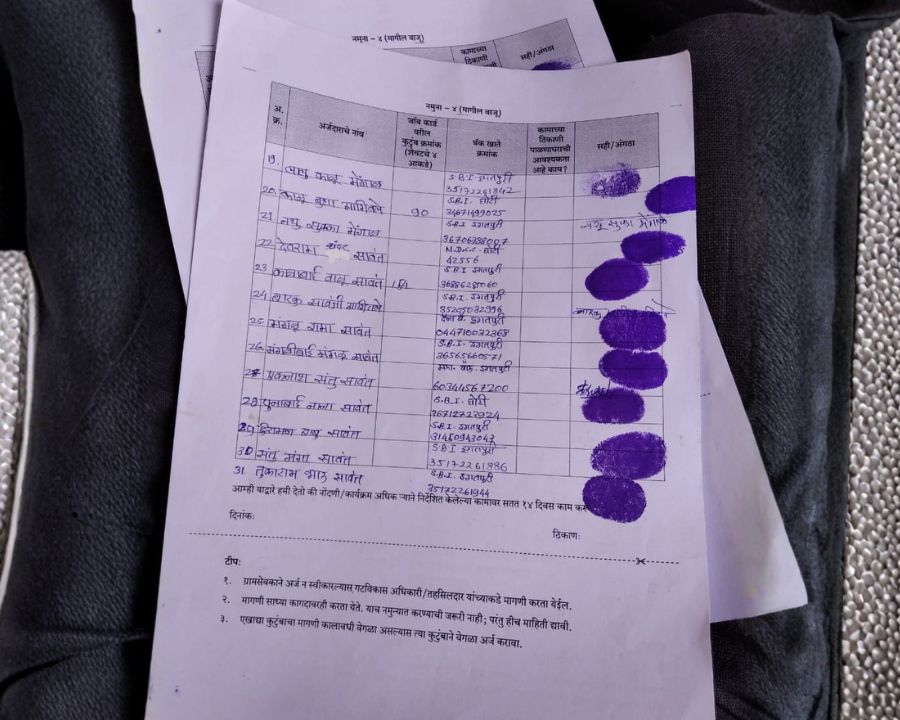 नमुना – ४ (मागील बाजू)
कामाच्या
ठिकाणी
सही/अंगठा
नमुना – ४ (मागील बाजू)
अ. क्र.
अर्जदाराचे नांव
जॉब कार्ड वरील कुटुंब क्रमांक (शेवटचे ४ आकडे)
बँक खाते क्रमांक
कामाच्या ठिकाणी पाळणाघराची आवश्यकता आहे काय?
सही/अंगठा
19. लाघु काळू मेंगाळ S.B.I. इगतपुरी 35172261842
20. काळू बुधा आगिवले 90 S.B.I. घोटी 34671499025
21. नथु सुक्का मेंगाळ S.B.I. इगतपुरी 36706398087 नथु सुका मेंगाळ
22. देवराम शंकर सावंत N.D.C.C. घोटी 42556
23. कानाबाई वाळू सावंत S.B.I. इगतपुरी 36886285060
24. बारकू सावजी आगिवले S.B.I. इगतपुरी 35205032996
25. मंगळू रामा सावंत इगतपुरी 044710032368
26. मंगळीबाई मंगळू सावंत S.B.I. इगतपुरी 36565660571
27. एकनाथ संतू सावंत महा. बँक. इगतपुरी 60344567200
28. पुनाबाई नाना सावंत S.B.I. घोटी 36712723924
29. हिरामण वाळू सावंत S.B.I. इगतपुरी 31460943047
30. संतू मंगा सावंत S.B.I इगतपुरी 35172261886
31. तुकाराम सावंत S.B.I. इगतपुरी 35172261944
आम्ही याद्वारे हमी देतो की नोंदणी/कार्यक्रम अधिकाऱ्याने निर्देशित केलेल्या कामावर सतत १४ दिवस काम करू
दिनांकः
ठिकाणः
टीपः
१. ग्रामसेवकाने अर्ज न स्वीकारल्यास गटविकास अधिकारी/तहसिलदार यांच्याकडे मागणी करता येईल.
२. मागणी साध्या कागदावरही करता येते. याच नमुन्यात करण्याची जरूरी नाही; परंतु हीच माहिती द्यावी.
३. एखाद्या कुटुंबाचा मागणी कालावधी वेगळा असल्यास त्या कुटुंबाने वेगळा अर्ज करावा.